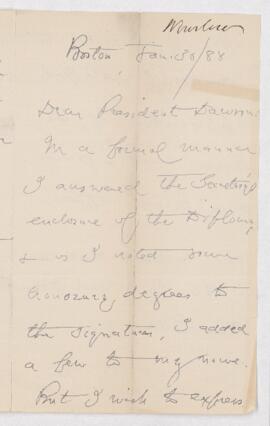 Boston Jan. 30/88
Dear President Dawson
In a formal manner
I answered the Secretary's
enclosure of the Diploma,
& as I noted some
honorary degrees to
the signature, I added
a few to my name.
But I wish to express